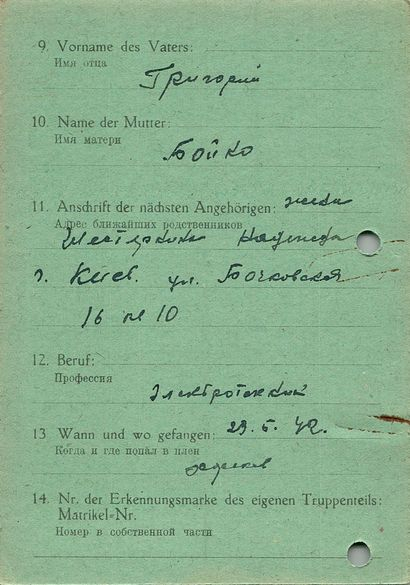 9. Vorname des Vaters:
Имя отца
Григорий
10. Name der Mutter:
Имя матери
Бойко
11. Anschrift der nächsten Angehörigen: жена
Адрес ближайших родственников
Надежда
г. Киев ул. Бочковская
16 кв 10
12. Beruf:
Профессия
Электротехник
13 Wann und wo gefangen: 29.5.42.
Когда и где попал в плен
14. Nr. der Erkennungsmarke des eigenen Truppenteils:
Matrikel-Nr.
Номер в собственной части